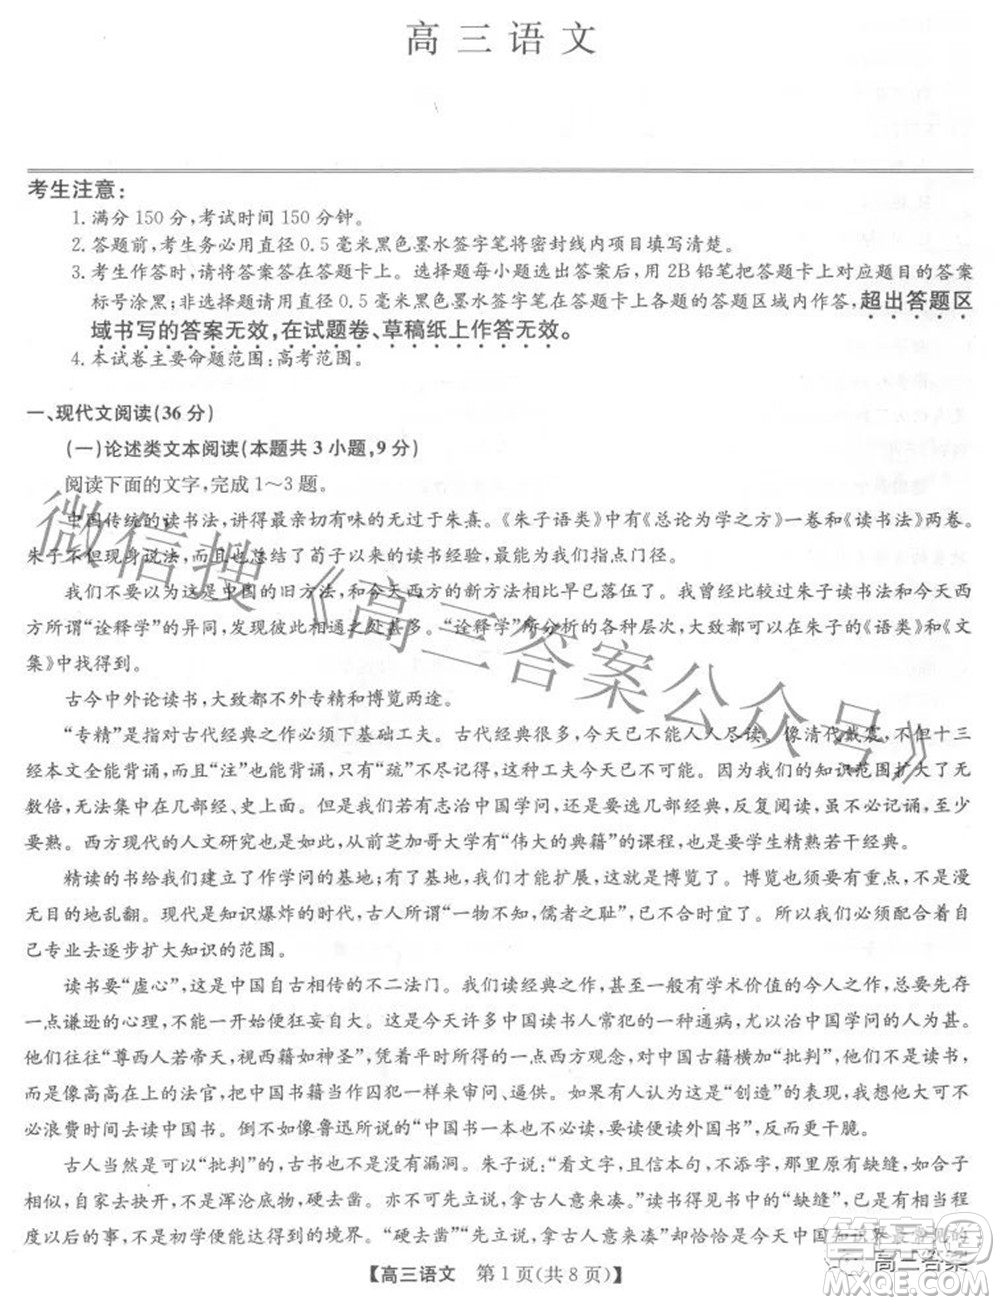 高三语文
考生注意：
1. 满分 150 分，考试时间 150 分钟。
2. 答题前，考生务必用直径 0.5 毫米黑色墨水签字笔将密封线内项目填写清楚。
3. 考生作答时，请将答案答在答题卡上。选择题每小题选出答案后，用 2B 铅笔把答题卡上对应题目的答案
标号涂黑；非选择题请用直径 0.5 毫米黑色墨水签字笔在答题卡上各题的答题区域内作答，超出答题区
域书写的答案无效，在试题卷、草稿纸上作答无效。
4. 本试卷主要命题范围：高考范围。
一、现代文阅读（36 分）
（一）论述类文本阅读（本题共 3 小题，9 分）
阅读下面的文字，完成 1～3 题。
中国传统的读书法，讲得最亲切有味的无过于朱熹。《朱子语类》中有《总论为学之方》一卷和《读书法》两卷。
朱子不但现身说法，而且总结了荀子以来的读书经验，最能为我们指点门径。
我们不要以为这是中国的旧方法，和今天西方的新方法相比早已落伍了。我曾经比较过朱子读书法和今天西
方所谓“诠释学”的异同，发现彼此相通之处甚多。“诠释学”所分析的各种层次，大致都可以在朱子的《语类》和《文
集》中找得到。
古今中外论读书，大致都不外专精和博览两途。
“专精”是指对古代经典之作必须下基础工夫。古代经典很多，今天已不能人人尽读。像清代戴震，不但十三
经本文全能背诵，而且“注”也能背诵，只有“疏”不尽记得，这种工夫今天已不可能。因为我们的知识范围扩大了无
数倍，无法集中在几部经、史上面。但是我们若有志治中国学问，还是要选几部经典，反复阅读，虽不必记诵，至少
要熟。西方现代的人文研究也还是如此，从前芝加哥大学有“伟大的典籍”的课程，也是要学生精熟若干经典。
精读的书给我们建立了作学问的基地；有了基地，我们才能扩展，这就是博览了。博览也须要有重点，不是漫
无目的地乱翻。现代是知识爆炸的时代，古人所谓“一物不知，儒者之耻”，已不合时宜了。所以我们必须配合着自
己专业去逐步扩大知识的范围。
读书要“虚心”，这是中国自古相传的不二法门。我们读经典之作，甚至一般有学术价值的今人之作，总要存
一点谦逊的心理，不能一开始便狂妄自大。这是今天许多中国读书人常犯的一种通病，尤以治中国学问的人为甚。
他们往往“尊西人若帝天，视西籍如神圣”，凭着平时所得的一点西方观念，对中国古籍横加“批判”，他们不是读书，
而是像高高在上的法官，把中国书籍当作囚犯一样来审问、逼供。如果有人认为这是“创造”的表现，我想他大可不
必浪费时间去读中国书。倒不如像鲁迅所说的“中国书一本也不必读，要读便读外国书”，反而更干脆。
古人当然是可以“批判”的，古书也不是没有漏洞。朱子说：“看文字，且信本句，不添字，那里原有缺缝，如合子
相似，自家去抉开，不是浑沦底物，硬去凿。亦不可先立说，拿古人意来凑。”读书得见书中的“缺缝”，已是有相当程
度以后的事，不是初学便能达得到的境界。“硬去凿”“先立说，拿古人意来凑”却恰恰是今天中国知识界最常见的
【高三语文 第 1 页（共 8 页）】
微信搜《高三答案公众号》
高三答案
答案圈